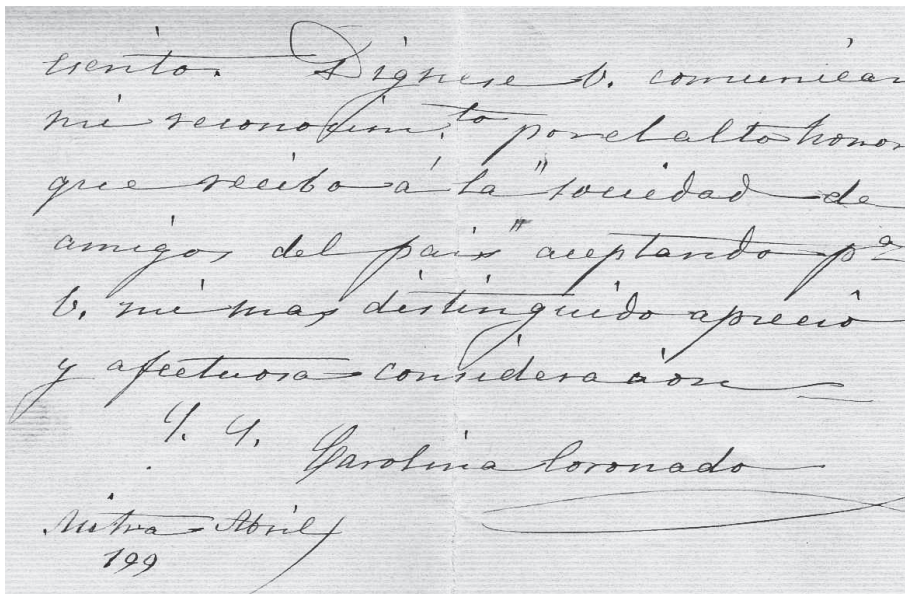 escrito. Dígnese V. comunicar
mi reconocim.to por el alto honor
que recibo á la "sociedad de
amigos del pais" aceptando pa
V. mi mas distinguido aprecio
y afectuosa consideracion
Carolina Coronado
Mitra Abril
199